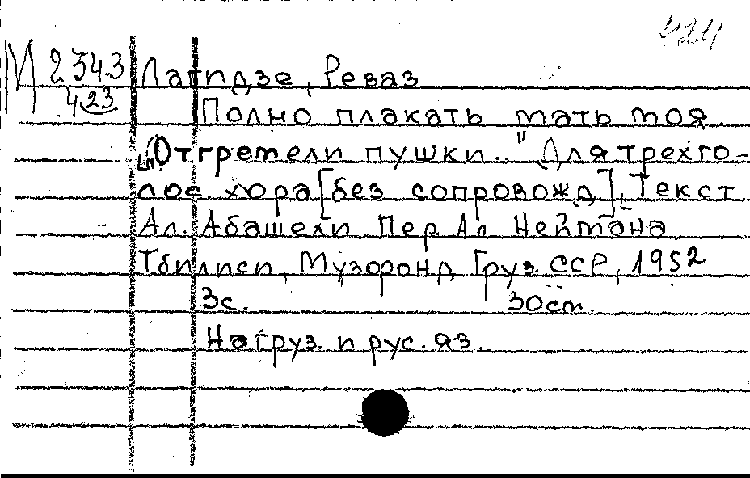 424
И 2343
423
Лагидзе, Реваз
Полно плакать мать моя
„Отгремели пушки.." Для трехго-
лос хора [без сопровожд]. Текст
Ал. Абашели Пер Ал Нейтана
Тбилиси, Музфонд Груз ССР, 1952
3с. 30ст
На груз и рус. яз.